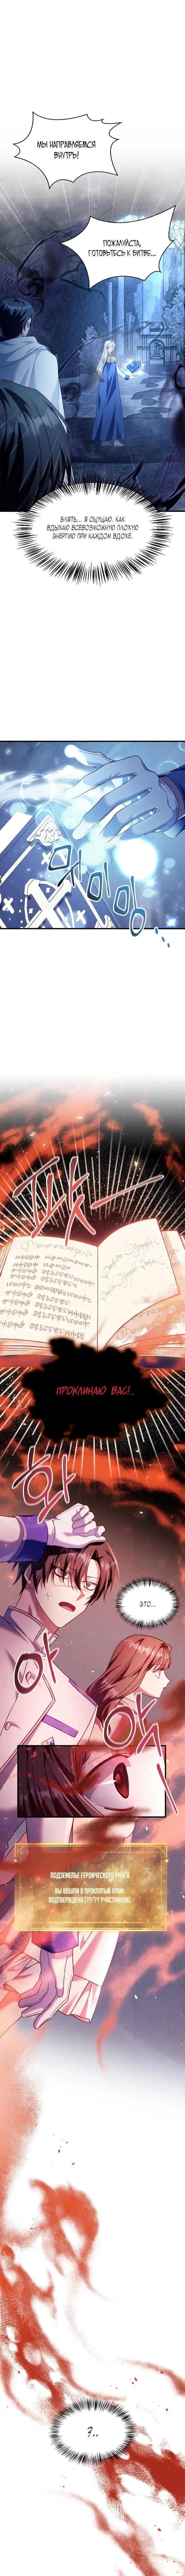 МЫ НАПРАВЛЯЕМСЯ
ВНУТРЬ!
ПОЖАЛУЙСТА,
ГОТОВЬТЕСЬ К БИТВЕ...
БЛЯТЬ... Я ОЩУЩАЮ, КАК
ВДЫХАЮ ВСЕВОЗМОЖНУЮ ПЛОХУЮ
ЭНЕРГИЮ ПРИ КАЖДОМ ВДОХЕ.
ПРОКЛИНАЮ ВАС!..
ЭТО...
ПОДЗЕМЕЛЬЕ ГЕРОИЧЕСКОГО РАНГА
ВЫ ВОШЛИ В ПРОКЛЯТЫЙ ХРАМ.
ПОДТВЕРЖДЕНО (??/?? УЧАСТНИКОВ)
?..